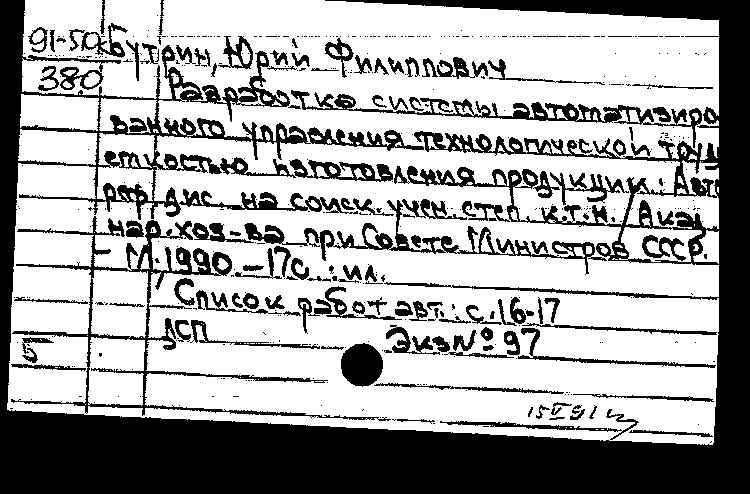 91-50к Бутрин, Юрий Филиппович
380
Разработка системы автоматизиро
ванного управления технологической труд
емкостью изготовления продукции: Авто
реф. дис. на соиск. учен. степ. к.т.н. Акад.
нар. хоз-ва при Совете Министров СССР.
– М. 1990. – 17с. : ил.
Список работ авт.: с. 16-17
ДСП Экз № 97
5
15 V 91